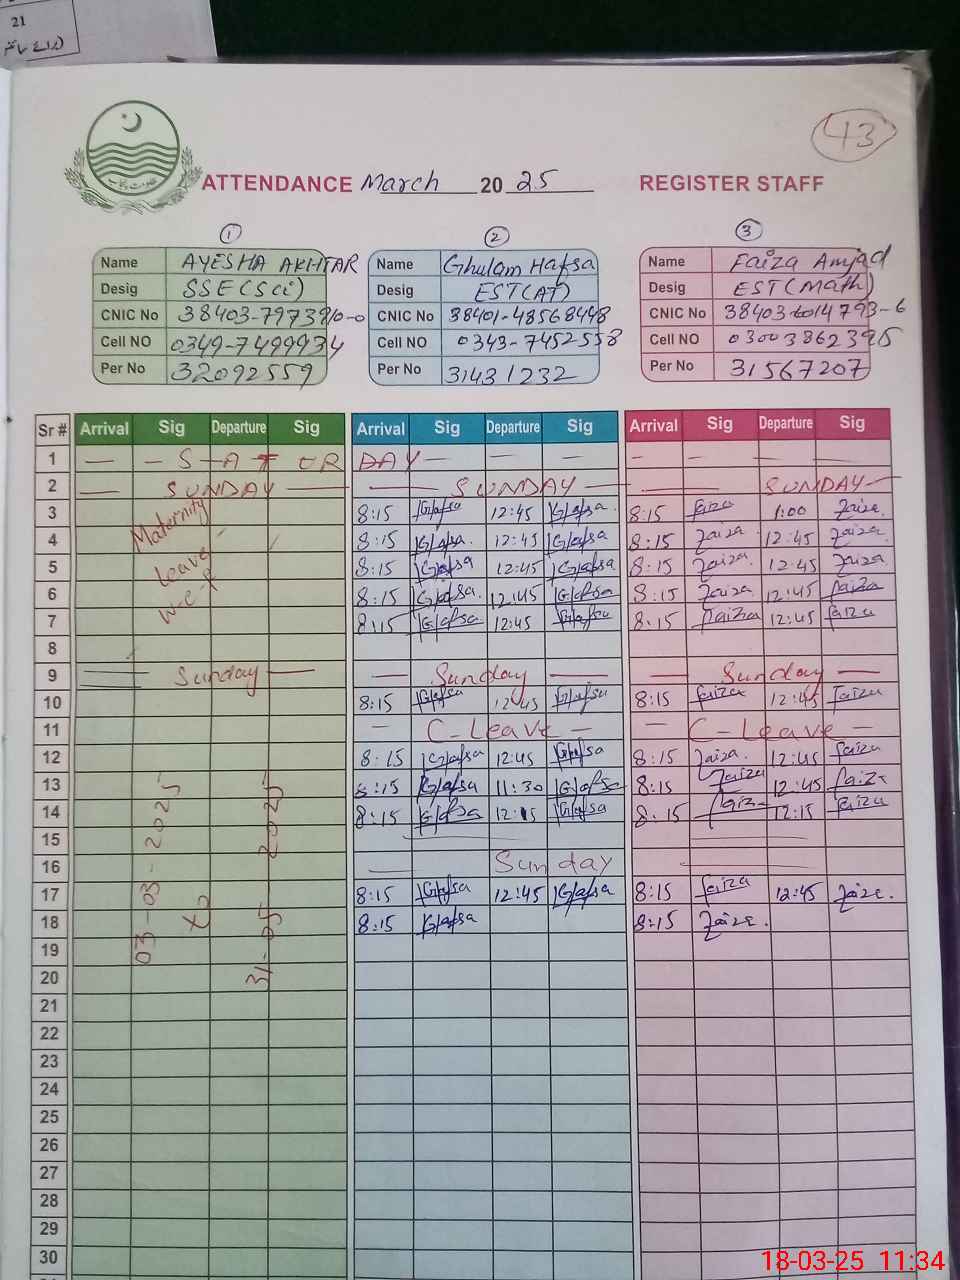 21
43
ATTENDANCE March 20 25 REGISTER STAFF
1 2 3
Name AYESHA AKHTAR Name Ghulam Hafsa Name Faiza Amjad
Desig SSE(Sci) Desig EST(AT) Desig EST(Math)
CNIC No CNIC No 38401-48568448 CNIC No
Cell NO 0349-7499934 Cell NO 0343-7452558 Cell NO 03003862395
Per No 32092559 Per No 31431232 Per No 31567207
Sr # Arrival Sig Departure Sig Arrival Sig Departure Sig Arrival Sig Departure Sig
1 — — S-A-T UR DAY — — — — — —
2 — SUNDAY — — SUNDAY — — SUNDAY —
3 Maternity 8:15 G/afsa 12:45 G/afsa 8:15 faiza 1:00 faiza
4 8:15 G/afsa 12:45 G/afsa 8:15 faiza 12:45 faiza
5 Leave 8:15 G/afsa 12:45 G/afsa 8:15 faiza 12:45 faiza
6 w-e-f 8:15 G/afsa 12:45 G/afsa 8:15 faiza 12:45 faiza
7 8:15 G/afsa 12:45 G/afsa 8:15 faiza 12:45 faiza
8
9 Sunday — — Sunday — — Sunday —
10 8:15 G/afsa 12:45 G/afsa 8:15 faiza 12:45 faiza
11 — C-Leave — — C-Leave —
12 8:15 G/afsa 12:45 G/afsa 8:15 faiza 12:45 faiza
13 8:15 G/afsa 11:30 G/afsa 8:15 faiza 12:45 faiza
14 8:15 G/afsa 12:15 G/afsa 8:15 faiza 12:15 faiza
15
16 — Sunday
17 8:15 G/afsa 12:45 G/afsa 8:15 faiza 12:45 faiza
18 8:15 G/afsa 8:15 faiza
03-03-2025
31-05-2025
19
20
21
22
23
24
25
26
27
28
29
30
18-03-25 11:34